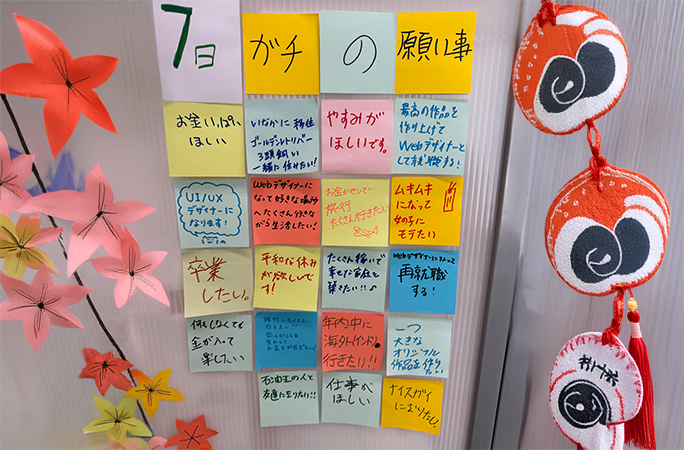 7日
ガチ
の
願い事
お金いっぱい
ほしい
いなかに移住
ゴールデンレトリバー
3頭飼い
一緒に住みたい!
やすみが
ほしいです。
最高の作品を
作り上げて
Webデザイナーと
して就職する!
UI/UX
デザイナーに
なります!
Webデザイナーに
なって好きな場所
へたくさん行きな
がら生活したい!
お金かせいで
旅行
たくさん行きたい
ムキムキ
になって
女の子に
モテたい
卒業
したい。
平和な休み
が欲しいで
す!
たくさん稼いで
幸せな家庭を
築きたい!!♪
Webデザイナーになって
再就職
する!
何もしなくても
金が入って
楽したい
年内中に
海外(インド)
行きたい!!
一つ
大きな
オリジナル
作品を作り
たい
石油王の人と
友達になりたい!!
仕事が
ほしい
ナイスガイ
になりたい。